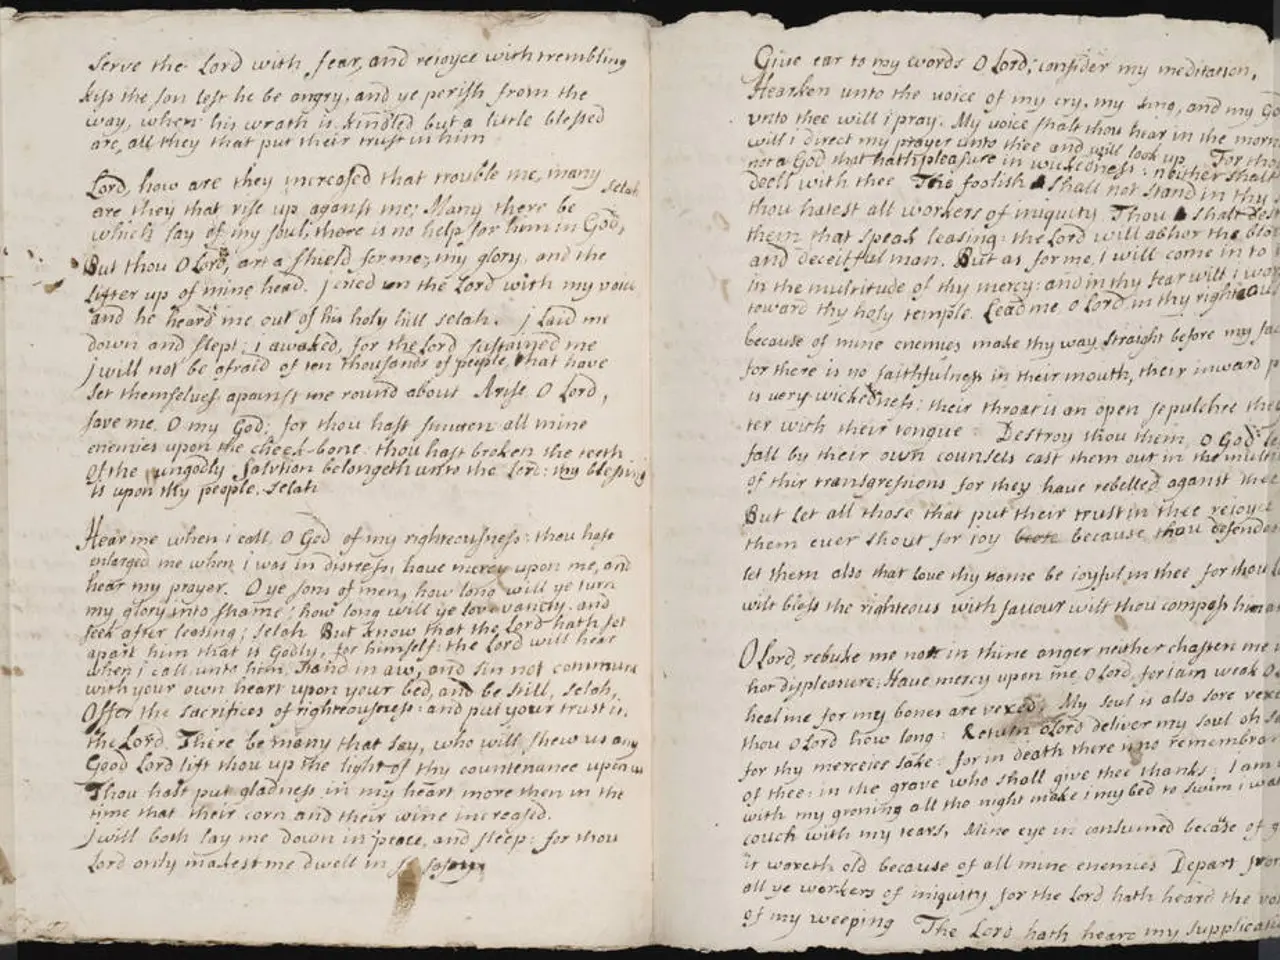 Serve the Lord with fear, and rejoyce with trembling
kiss the son lest he be angry, and ye perish from the
way, when his wrath is kindled but a little blessed
are, all they that put their trust in him
Lord, how are they increased that trouble me, many selah
are they that rise up against me; Many there be
which say of my soul, there is no help for him in God,
But thou O Lord, art a shield for me; my glory, and the
lifter up of mine head. I cried un the Lord with my voice
and he heard me out of his holy hill selah. I laid me
down and slept; i awaked, for the Lord sustained me
I will not be afraid of ten thousands of people, that have
set themselves against me round about Arise O Lord,
save me. O my God; for thou hast smitten all mine
enemies upon the cheek-bone: thou hast broken the teeth
Of the ungodly Salvtion belongeth unto the Lord: my blessing
is upon thy people. Selah
Hear me when i call O God of my righteousness: thou hast
enlarged me when i was in distress; have mercy upon me, and
hear my prayer. O ye sons of men, how long will ye turn
my glory into shame; how long will ye lov vanity. and
seek after leasing; Selah But know that the Lord hath set
apart him that is Godly, for himself: the Lord will hear
when i call unto him. Stand in aw, and sin not commune
with your own heart upon your bed, and be still, selah,
Offer the sacrifices of righteousness: and put your trust in
the Lord. There be many that say, who will shew us any
Good Lord lift thou up the light of thy countenance upon us
Thou hast put gladness in my heart more then in the
time that their corn and their wine increased.
I will both lay me down in peace, and sleep: for thou
Lord only makest me dwell in
Give ear to my words O Lord; consider my meditation,
Hearken unto the voice of my cry, my king, and my God
vnto thee will i pray. My voice shalt thou hear in the morn
will i direct my prayer unto thee and will look up. For tho
not a God that hath pleasure in wickedness: neither shall
dwell with thee The foolish shall not stand in thy
thou hatest all workers of iniquity. Thou shalt Dest
them that speak leasing: the Lord will abhor the bloo
and deceitful man. But as for me, I will come in to
in the multitude of thy mercy: and in thy fear will i wor
toward thy holy temple. Lead me, O Lord in thy righteous
because of mine enemies make thy way straight before my fac
for there is no faithfulness in their mouth, their inward p
is very wickedness: their throat is an open sepulchre the
ter with their tongue Destroy thou them, O God le
fall by their own counsels cast them out in the multi
of thir transgressions for they have rebelled against thee
But let all those that put their trust in thee rejoyce
them ever shout for joy because thou defendes
let them also that love thy name be joyful in thee for thou L
wilt bless the righteous with favour wilt thou compass him a
O Lord, rebuke me not in thine anger neither chasten me i
hot displeasure; Have mercy upon me O Lord, for i am weak O
heal me for my bones are vexed; My soul is also sore vexe
thou O Lord how long: Return O Lord deliver my soul oh s
for thy merceies sake: for in death there is no remembran
of thee: in the grave who shall give thee thanks; I am
with my groning all the night make i my bed to swim i wa
couch with my tears, Mine eye in consumed because of g
it woreth old because of all mine enemies Depart from
all ye workers of iniquity for the Lord hath heard the voi
of my weeping The Lord hath heard my supplicati